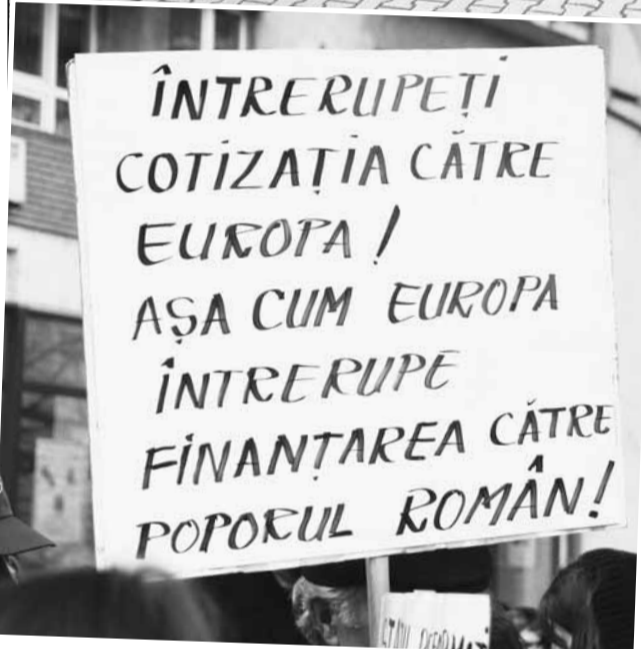 ÎNTRERUPEȚI
COTIZAȚIA CĂTRE
EUROPA!
AȘA CUM EUROPA
ÎNTRERUPE
FINANȚAREA CĂTRE
POPORUL ROMÂN!